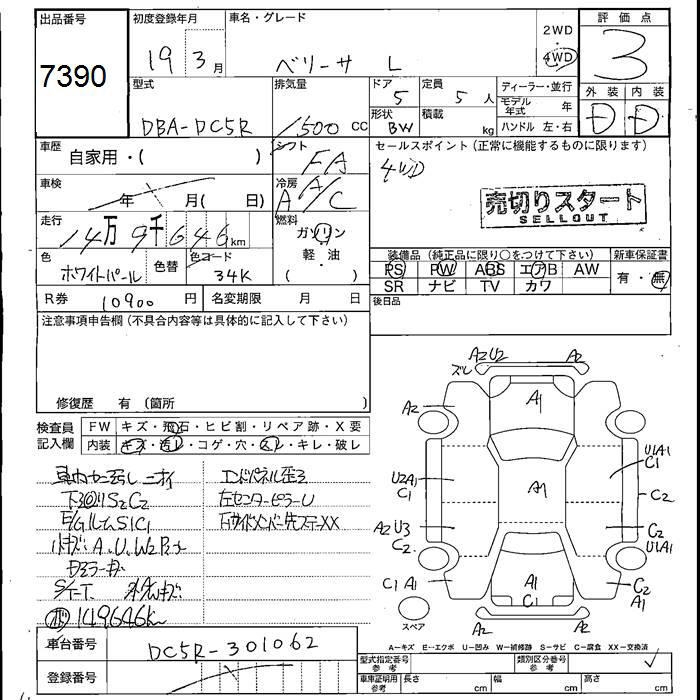 出品番号
7390
初度登録年月
19 3月
車名・グレード
ベリーサ L
2WD
・
4WD
評価点
3
型式
DBA-DC5R
排気量
1500 cc
ドア
5
形状
BW
定員
5 人
積載
kg
ディーラー・並行
モデル年式 年
ハンドル 左・右
外装 内装
D D
車歴
自家用・( )
シフト
FA
セールスポイント(正常に機能するものに限ります)
4WD
売切りスタート
SELLOUT
車検
年 月( 日)
冷房
A A/C
走行
14万9千646km
燃料
ガソリン
・
軽・油
( )
色
ホワイトパール
色替
色コード
34K
装備品(純正品に限り○をつけて下さい)
PS PW ABS エアB AW
SR ナビ TV カワ
新車保証書
有・無
R券 10900円
名変期限 月 日
後日品
注意事項申告欄(不具合内容等は具体的に記入して下さい)
修復歴 有(箇所 )
検査員記入欄
FW キズ・飛石・ヒビ割・リペア跡・X要
内装 キズ・汚レ・コゲ・穴・スレ・キレ・破レ
ニオイ
下回りS2C2
E/GルームS1C1
小キズ:A、U、W2
149646K
エンドパネル歪ミ
左センターピラーU
A2U2
ズレ
A2
A2
A1
U2A1
C1
A1
U1A1
C1
C2
A2U3
C2
C2
U1A1
C1 A1
A1
C1
C2
A1
A2
A2
スペア
A-キズ E-エクボ U-凹み W-補修跡 S-サビ C-腐食 XX-交換済
車台番号
DC5R-301062
登録番号
型式指定番号
参考
類別区分番号
参考
車庫証明用
参考
長さ cm
幅 cm
高さ cm